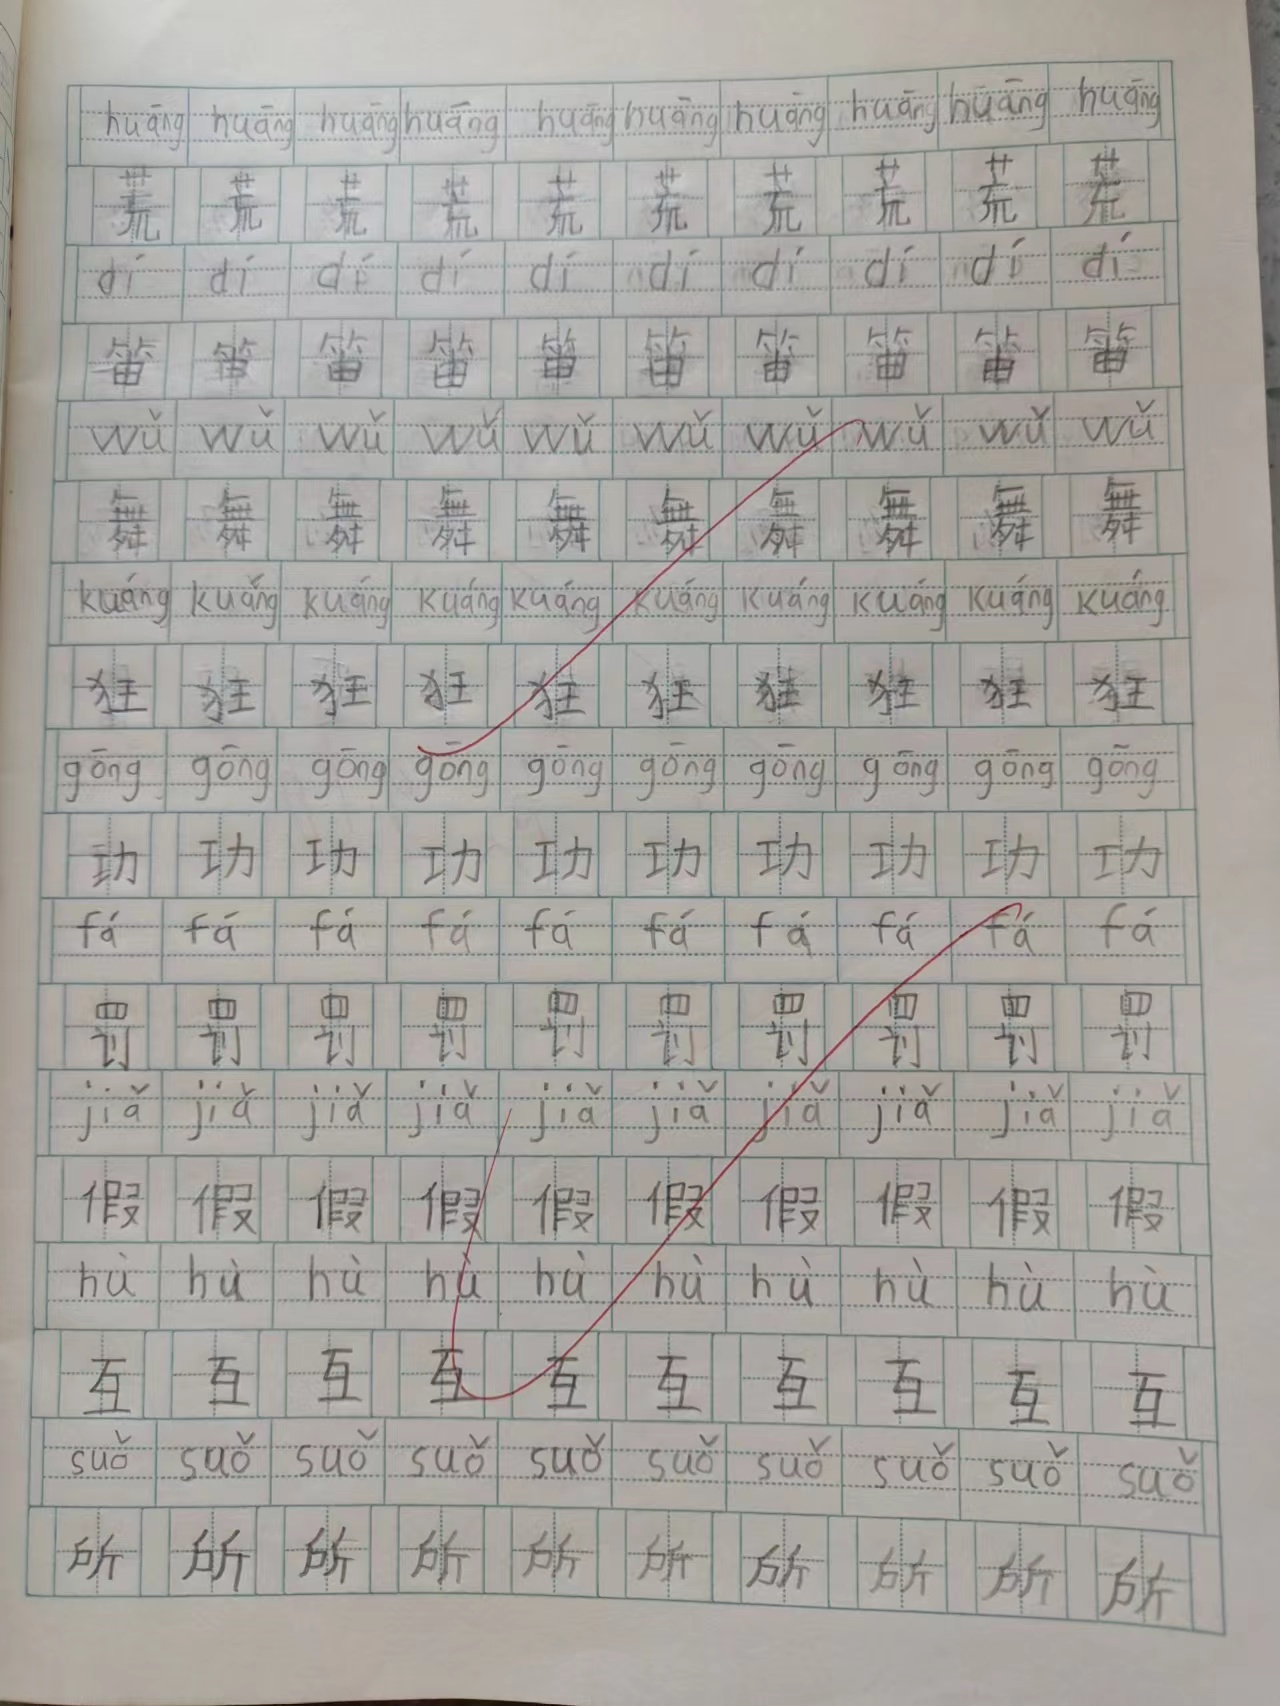 huāng huāng huāng huāng huāng huāng huāng huāng huāng huāng
荒 荒 荒 荒 荒 荒 荒 荒 荒 荒
dí dí dí dí dí dí dí dí dí dí
笛 笛 笛 笛 笛 笛 笛 笛 笛 笛
wǔ wǔ wǔ wǔ wǔ wǔ wǔ wǔ wǔ wǔ
舞 舞 舞 舞 舞 舞 舞 舞 舞 舞
kuáng kuáng kuáng kuáng kuáng kuáng kuáng kuáng kuáng kuáng
狂 狂 狂 狂 狂 狂 狂 狂 狂 狂
gōng gōng gōng gōng gōng gōng gōng gōng gōng gōng
功 功 功 功 功 功 功 功 功 功
fá fá fá fá fá fá fá fá fá fá
罚 罚 罚 罚 罚 罚 罚 罚 罚 罚
jiǎ jiǎ jiǎ jiǎ jiǎ jiǎ jiǎ jiǎ jiǎ jiǎ
假 假 假 假 假 假 假 假 假 假
hù hù hù hù hù hù hù hù hù hù
互 互 互 互 互 互 互 互 互 互
suǒ suǒ suǒ suǒ suǒ suǒ suǒ suǒ suǒ suǒ
所 所 所 所 所 所 所 所 所 所